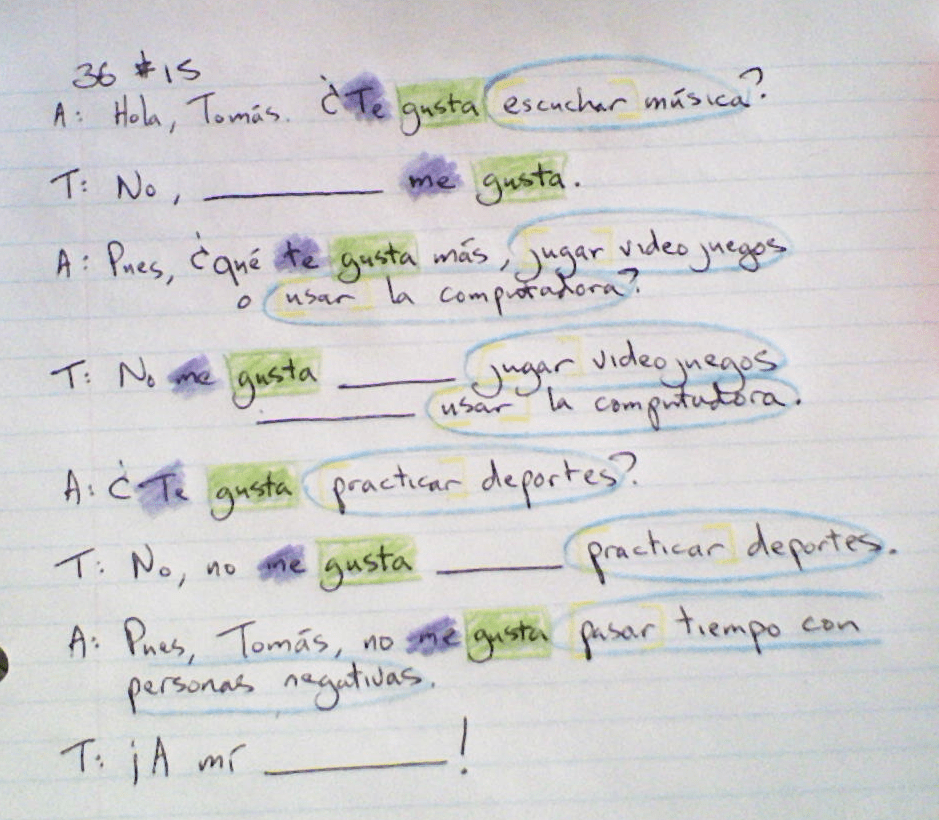 36 #15
A: Hola, Tomás. ¿Te gusta escuchar música?
T: No, __________ me gusta.
A: Pues, ¿qué te gusta más, jugar videojuegos
o usar la computadora?
T: No me gusta _______ jugar videojuegos
_________ usar la computadora.
A: ¿Te gusta practicar deportes?
T: No, no me gusta _______ practicar deportes.
A: Pues, Tomás, no me gusta pasar tiempo con
personas negativas.
T: ¡A mí __________!